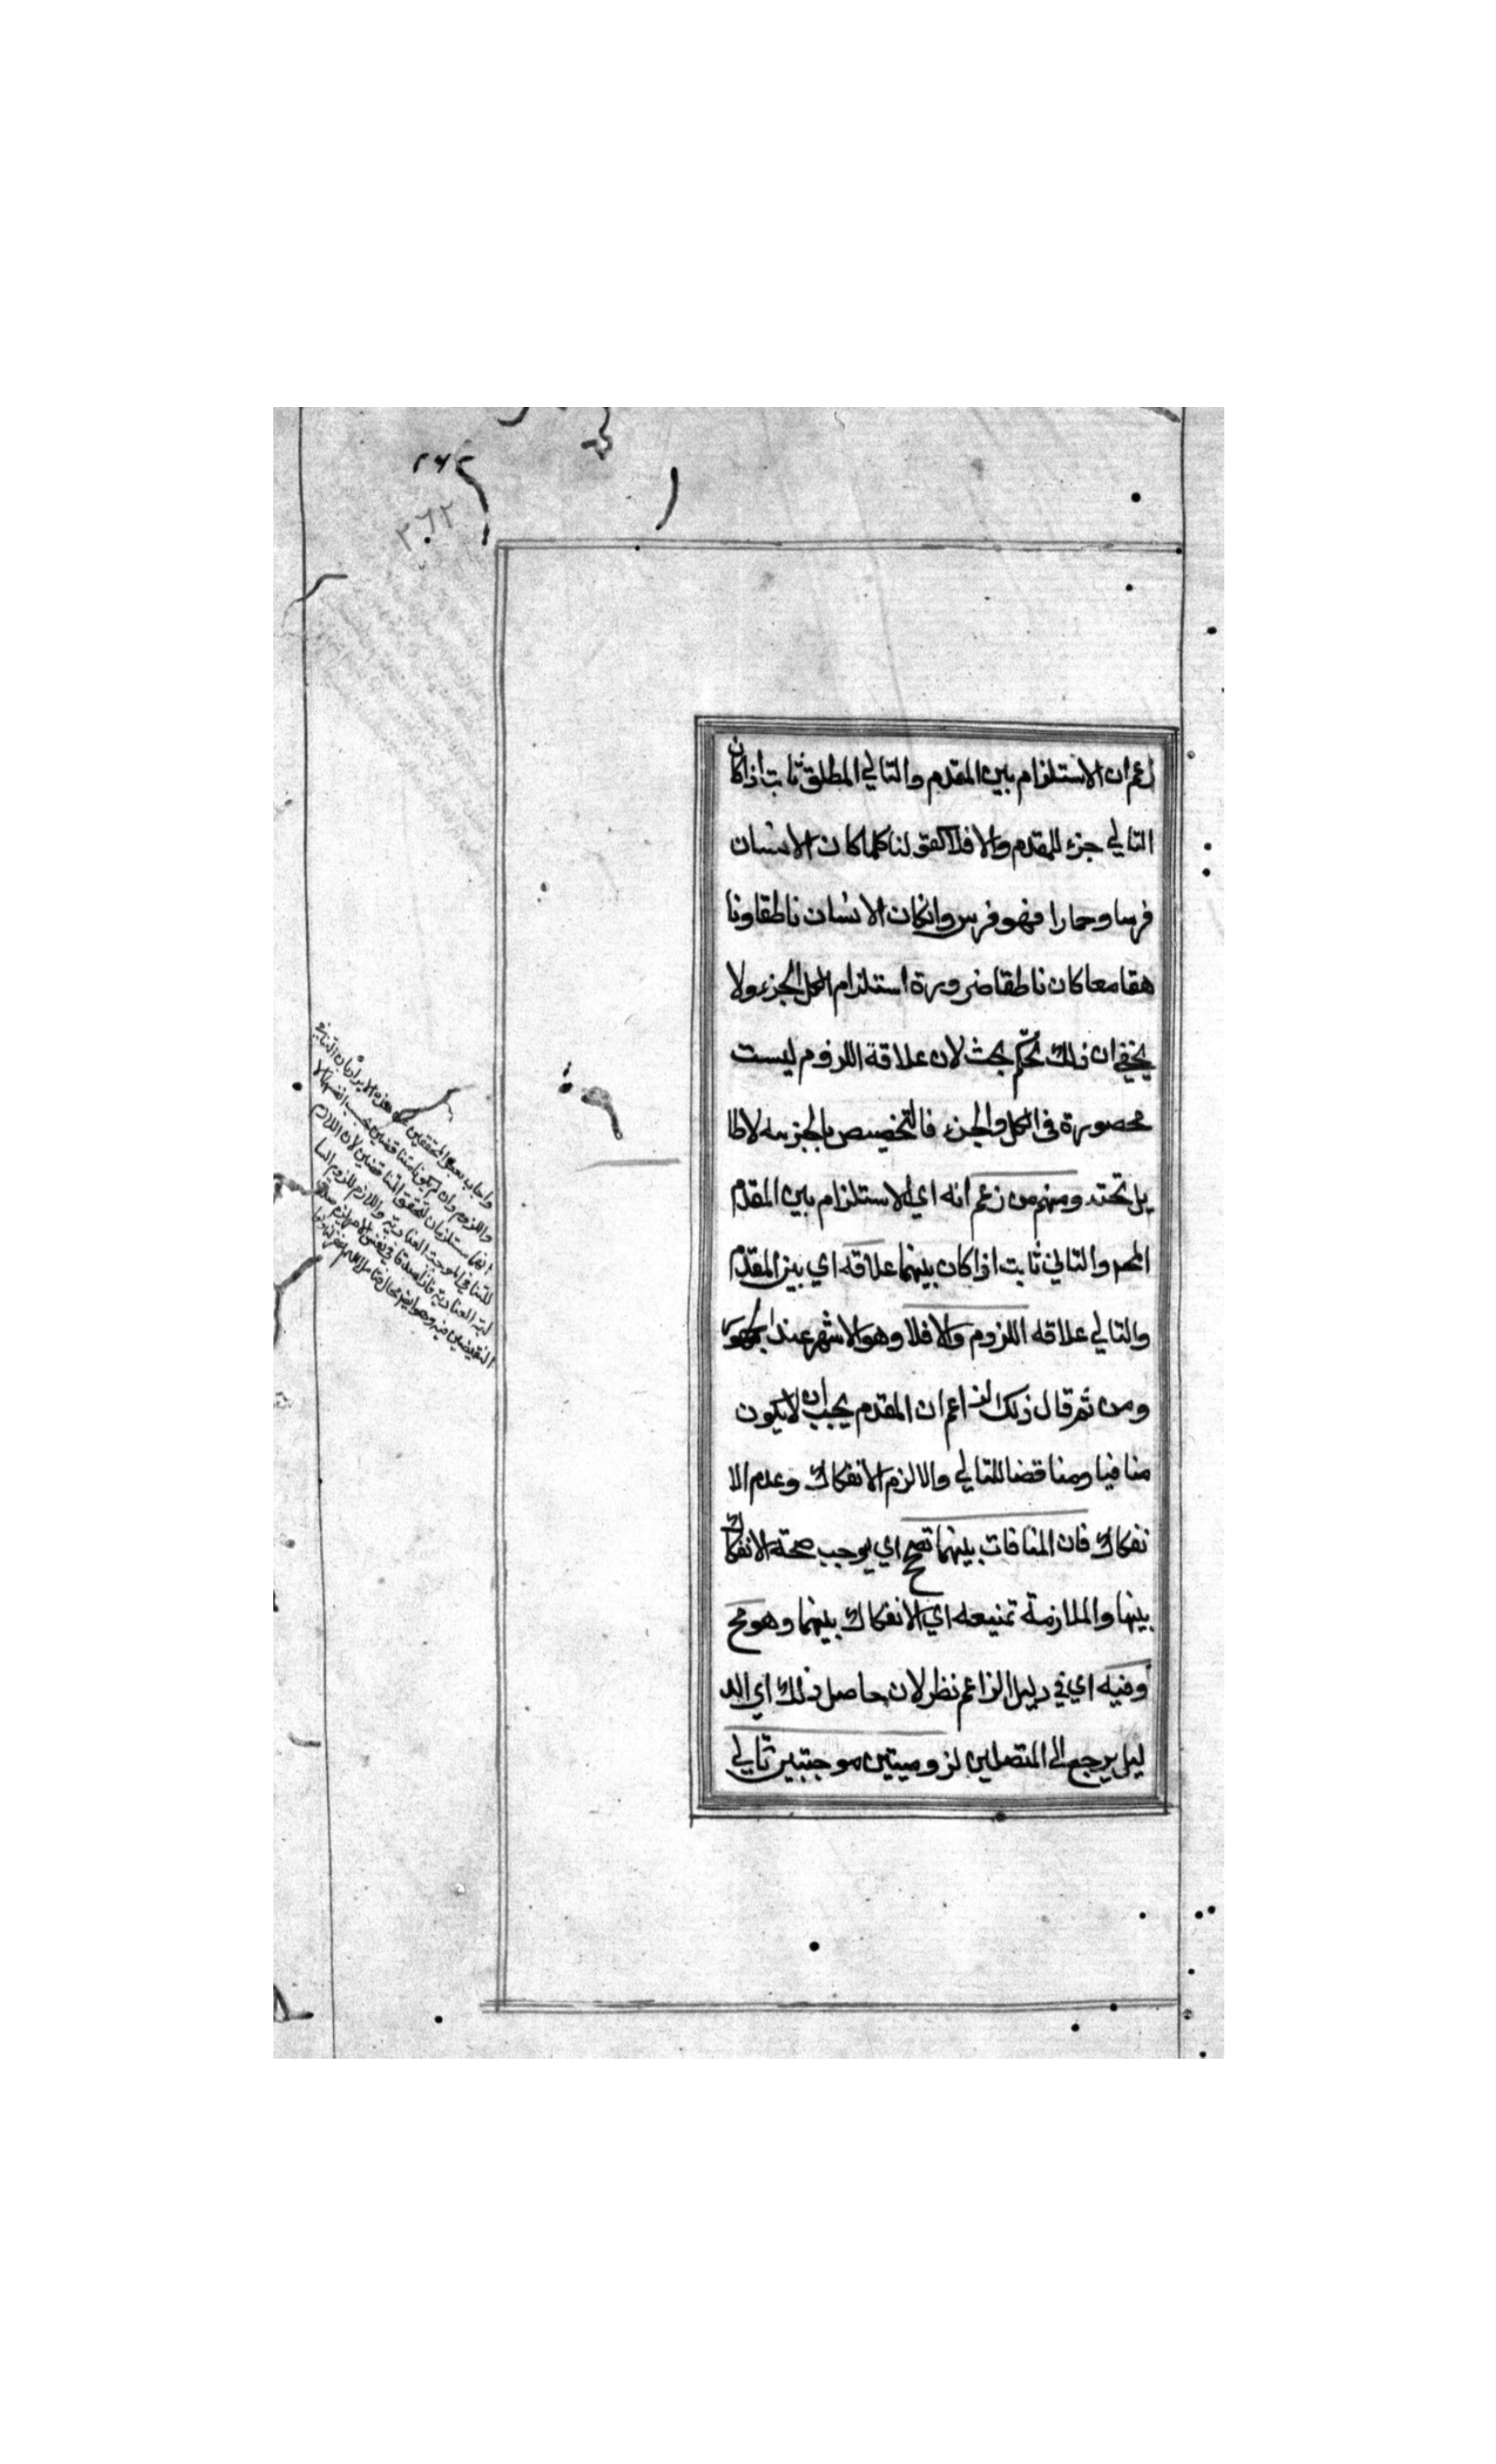 ٢٦٢
٢٦٢
زعم ان الاستلزام بين المقدم والتالي المطلق ثابت اذا كان
التالي جزء للمقدم والا فلا كقولنا كلما كان الانسان
فرسا وحمارا فهو فرس وانكان الانسان ناطقا ونا
هقا معا كان ناطقا ضرورة استلزام الكل الجزء ولا
يخفى ان ذلك تحكم بحث لان علاقة اللزوم ليست
محصورة في الكل والجزء فالتخصيص بالجزئيه لا طا
يل تحته ومنهم من زعم انه اي الاستلزام بين المقدم
المح والتالي ثابت اذا كان بينهما علاقه اي بين المقدم
والتالي علاقه اللزوم والا فلا وهو الاشهر عند الجمهور
ومن ثم قال ذلك الزاعم ان المقدم يجب ان لا يكون
منافيا ومناقضا للتالي والا لزم الانفكاك وعدم الا
نفكاك فان المنافات بينهما تصحح اي يوجب صحة الانفكاك
بينها والملازمة تمنيعه اي الانفكاك بينهما وهو مح
وفيه اي في دليل الزاعم نظر لان حاصل ذلك اي الد
ليل يرجع الى المتصلين لزوميتين موجبتين تالي
واجاب بعض المحققين عن هذه الايراد بان التنافي
واللزوم وان لم يكونا متناقضين بحسب انفسهما الا
انهما مستلزمان لتحقق المتناقضين لان اللازم
للتنافي الموجبة العنادية واللازم للزوم السا
لبة العنادية
النقيضين